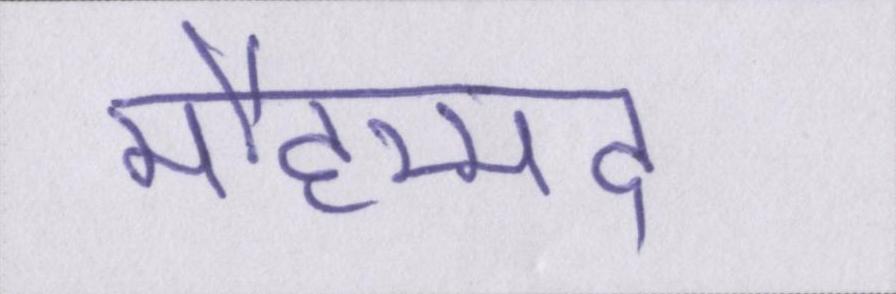 मौहम्मद